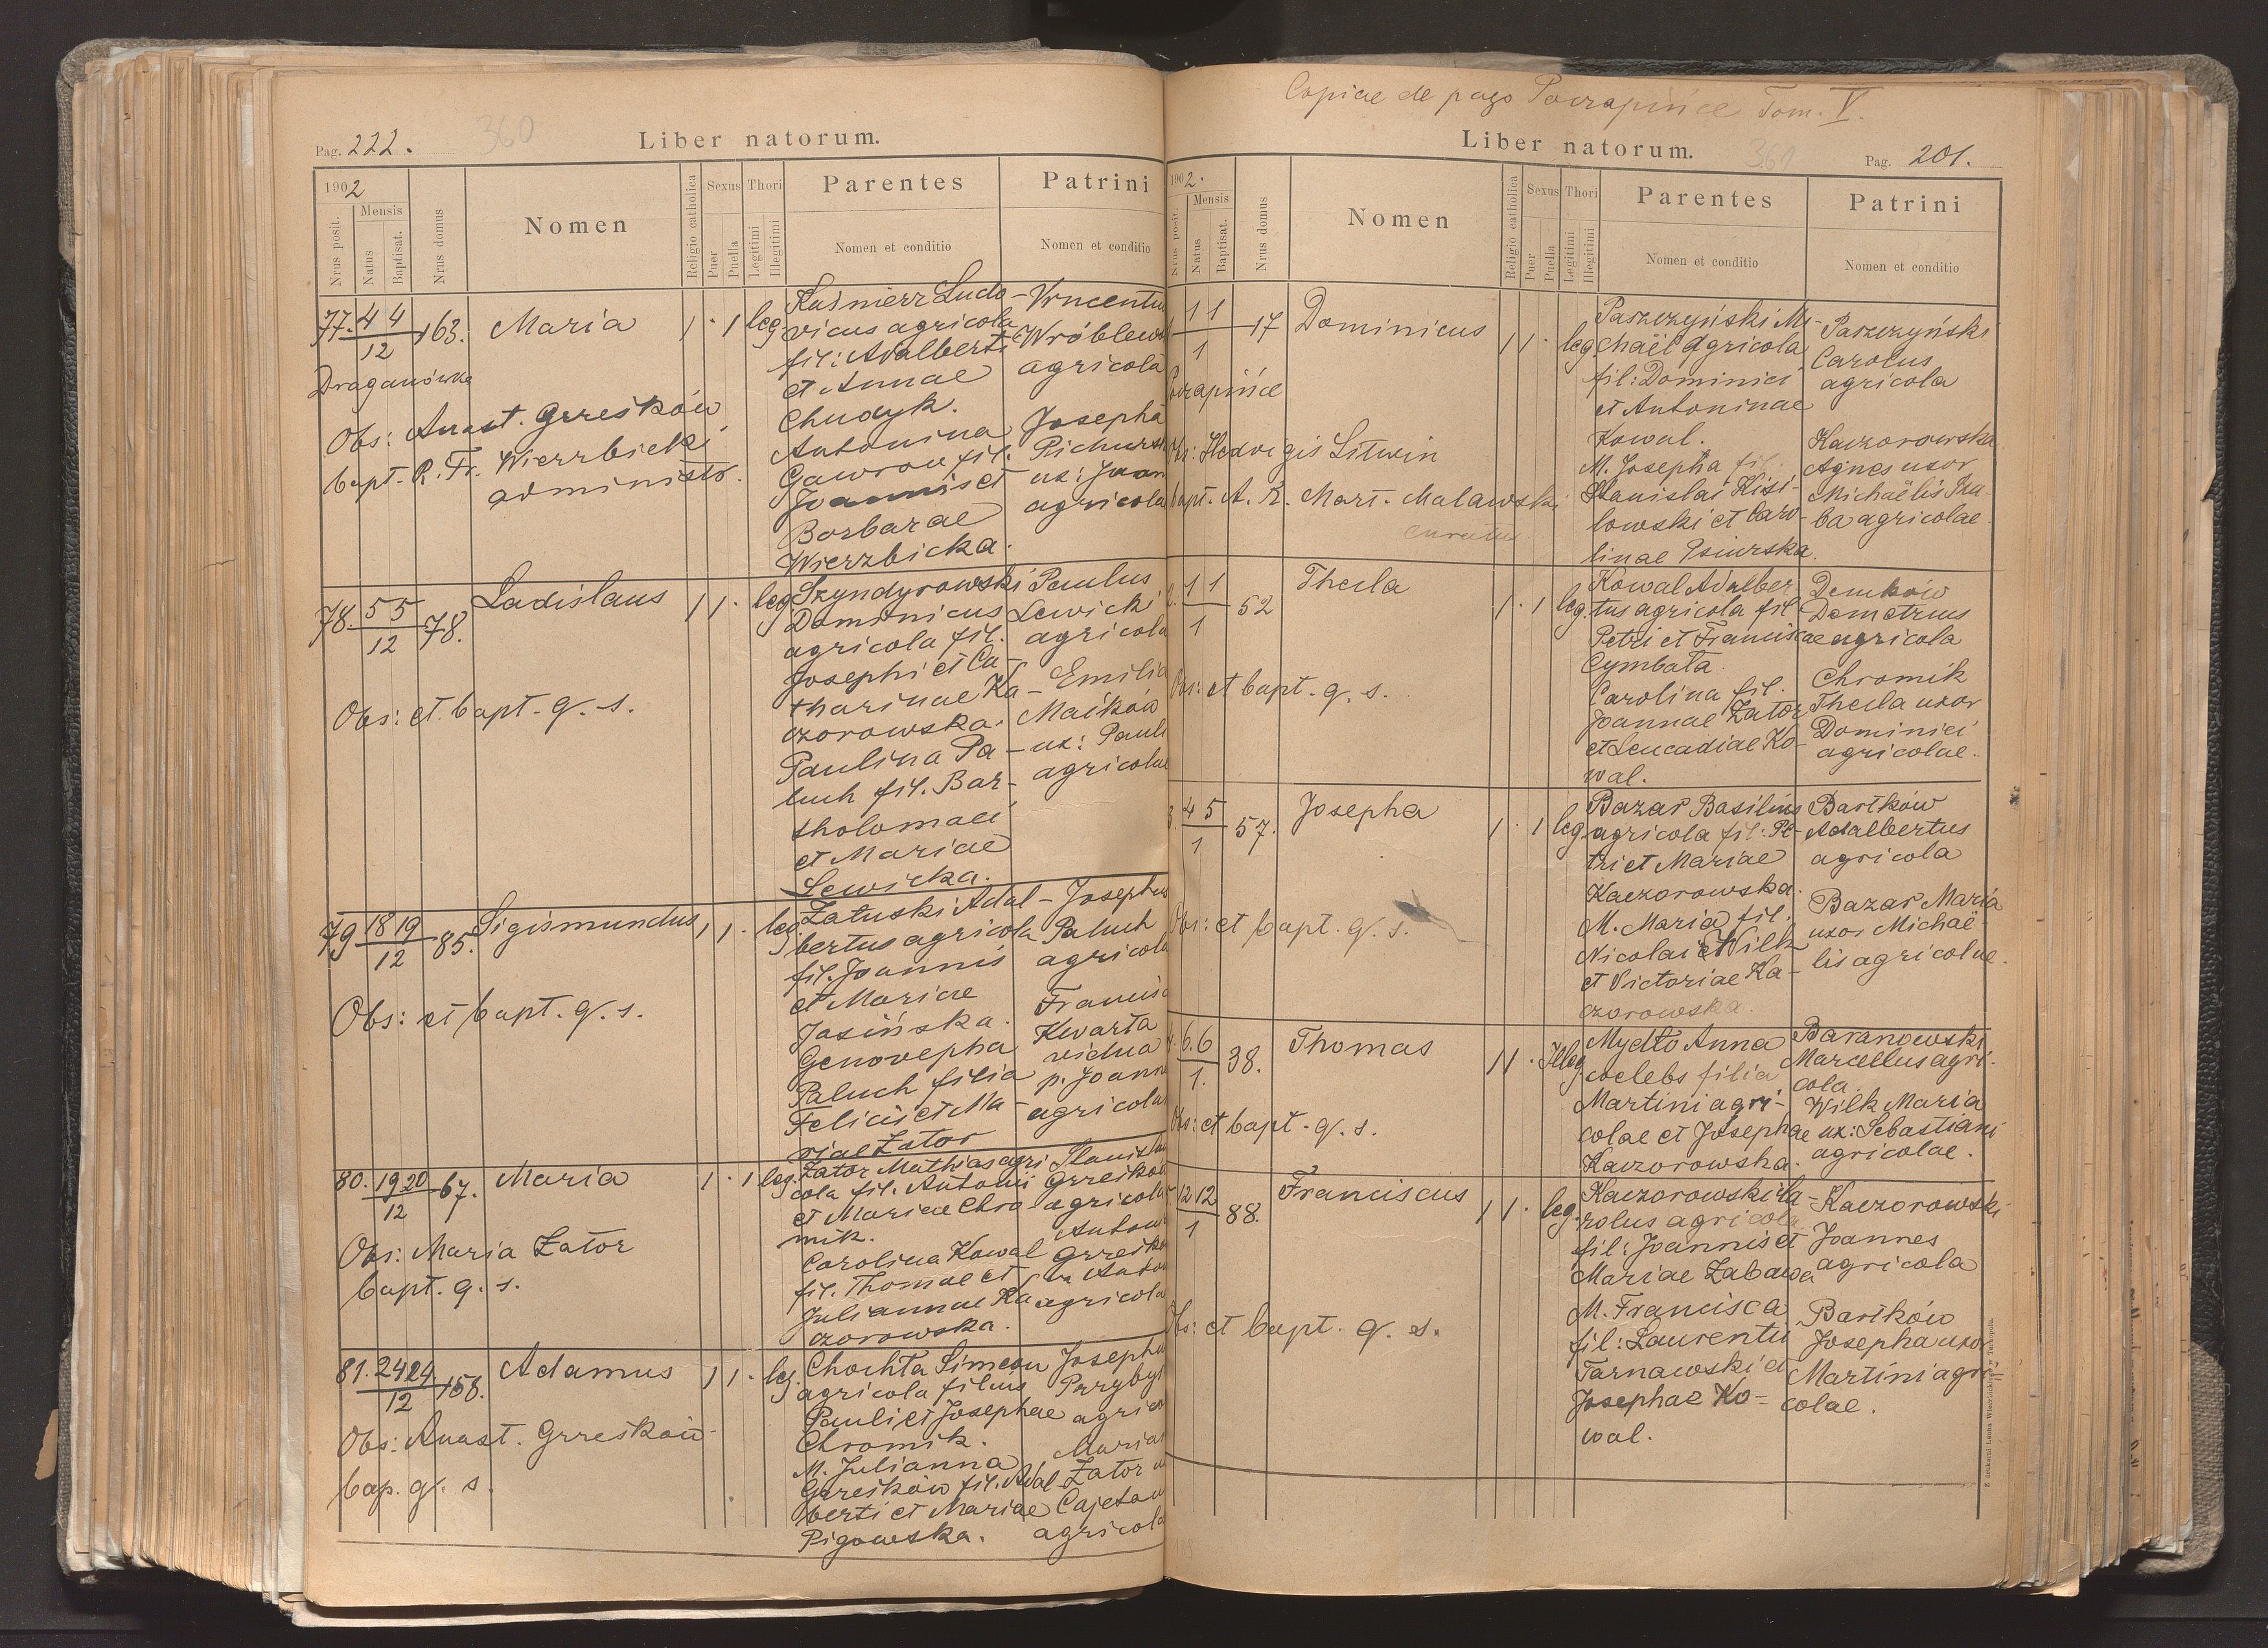 Pag. 222.
360
Liber natorum.
1902
Nrus posit.
Mensis
Natus
Baptisat.
Nrus domus
Nomen
Religio catholica
Sexus
Puer
Puella
Thori
Legitimi
Illegitimi
Parentes
Nomen et conditio
Patrini
Nomen et conditio
77. 4 4 163. Maria 1 · 1 leg.
12
Draganówka
Obs: Anast. Grześków
bapt. R. Fr. Wierzbicki
administr.
Kuśnierz Ludo-
vicus agricola
fil: Adalberti
et Annae
Chudyk.
Antonina
Gawron fil.
Joannis et
Barbarae
Wierzbicka.
Vincentius
Wróblews
agricola
Josepha
Pichursk
ux: Joan
agricola
78. 5 5 78. Ladislaus 1 1 · leg
12
Obs: et bapt. q. s.
Szyndyrowski
Dominicus
agricola fil.
Josephi et Ca-
tharinae Ka-
czorowska.
Paulina Pa-
luch fil. Bar-
tholomaei
et Mariae
Lewicka.
Paulus
Lewicki
agricola
Emilia
Maików
ux: Pauli
agricolae
79 18 19 85. Sigismundus 1 1 · leg.
12
Obs: et bapt. q. s.
Załuski Adal-
bertus agricola
fil. Joannis
et Mariae
Jasińska.
Genovepha
Paluch filia
Felicis et Ma-
riae Zator
Josephus
Paluch
agricola
Francisc
Kwarta
vidua
p. Joanne
agricola
80. 19 20 67. Maria 1 · 1 leg.
12
Obs: Maria Zator
bapt. q. s.
Zator Mathias agri
cola fil. Antonii
et Mariae Chro
mik.
Carolina Kowal
fil. Thomae et
Juliannae Ka
czorowska.
Stanislau
Grześków
agricola
Anton
Grześkó
Anto
agricola
81. 24 24 158. Adamus 1 1 · leg.
12
Obs: Anast. Grześków
bap. q. s.
Chochta Simeon
agricola filius
Pauli et Josephae
Chromik.
M. Julianna
Grześków fil. Adal
berti et Mariae
Pigowska.
Josephu
Przybył
agrico
Maria
Zator u
Cajetan
agricola
Copiae de pago Poczapińce Tom. V.
Liber natorum.
361
Pag. 201.
1902.
Nrus posit.
Mensis
Natus
Baptisat.
Nrus domus
Nomen
Religio catholica
Sexus
Puer
Puella
Thori
Legitimi
Illegitimi
Parentes
Nomen et conditio
Patrini
Nomen et conditio
1 1 17 Dominicus 1 1 · leg
1
Poczapińce
Obs: Hedvigis Litwin
bapt. A. R. Mart. Malawski
curatus
Paszczyński Mi-
chaël agricola
fil: Dominici
et Antoninae
Kowal.
M. Josepha fil.
Stanislai Kisi-
lowski et Caro-
linae Psiurska.
Paszczyński
Carolus
agricola
Kaczorowska
Agnes uxor
Michaëlis
agricolae.
2. 1 1 52 Thecla 1 · 1 leg.
1
Obs: et bapt. q. s.
Kowal Adalber
tus agricola fil
Petri et Franciscae
Cymbała.
Carolina fil.
Joannae Zator
et Leucadiae Ko-
wal.
Demków
Demetrius
agricola
Chromik
Thecla uxor
Dominici
agricolae.
3. 4 5 57. Josepha 1 · 1 leg
1
Obs: et bapt. q. s.
Bazar Basilius
agricola fil: Pe-
tri et Mariae
Kaczorowska.
M. Maria fil.
Nicolai Wilk
et Victoriae Ka-
czorowska.
Bartków
Adalbertus
agricola
Bazar Maria
uxor Michaë-
lis agricolae.
4. 6. 6 38. Thomas 1 1 · Illeg
1.
Obs: et bapt. q. s.
Mydło Anna
coelebs filia
Martini agri-
colae et Josephae
Kaczorowska.
Baranowski
Marcellus agri-
cola.
Wilk Maria
ux: Sebastiani
agricolae.
5. 12 12 88. Franciscus 1 1 · leg.
1
Obs: et bapt. q. s.
Kaczorowski Ca-
rolus agricola
fil: Joannis et
Mariae Zabawa
M. Francisca
fil: Laurentii
Tarnawski et
Josephae Ko-
wal.
Kaczorowski
Joannes
agricola
Bartków
Josepha uxor
Martini agri-
colae.